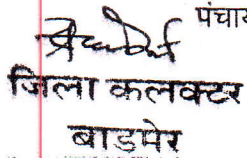 पंचाय
जिला कलक्टर
बाडमेर